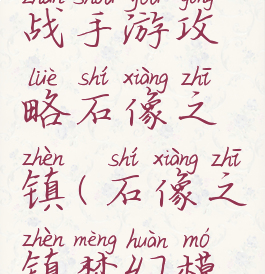 zhàn shǒu yóu gōng
战手游攻
lüè shí xiàng zhī
略石像之
zhèn shí xiàng zhī
镇(石像之
zhèn mèng huàn mó
镇梦幻模